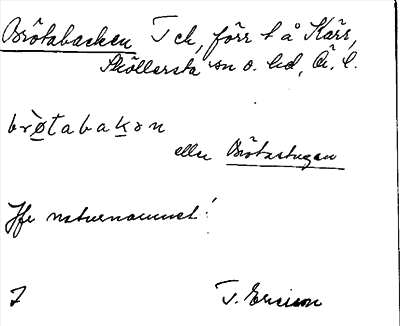 Brötabacken T ch, förr t å Kärr,
Sköllersta sn o. hd, Ör. l.
brø̀tabakɔn
eller Brötastugan
Jfr naturnamnet!
I
T. Ericsson